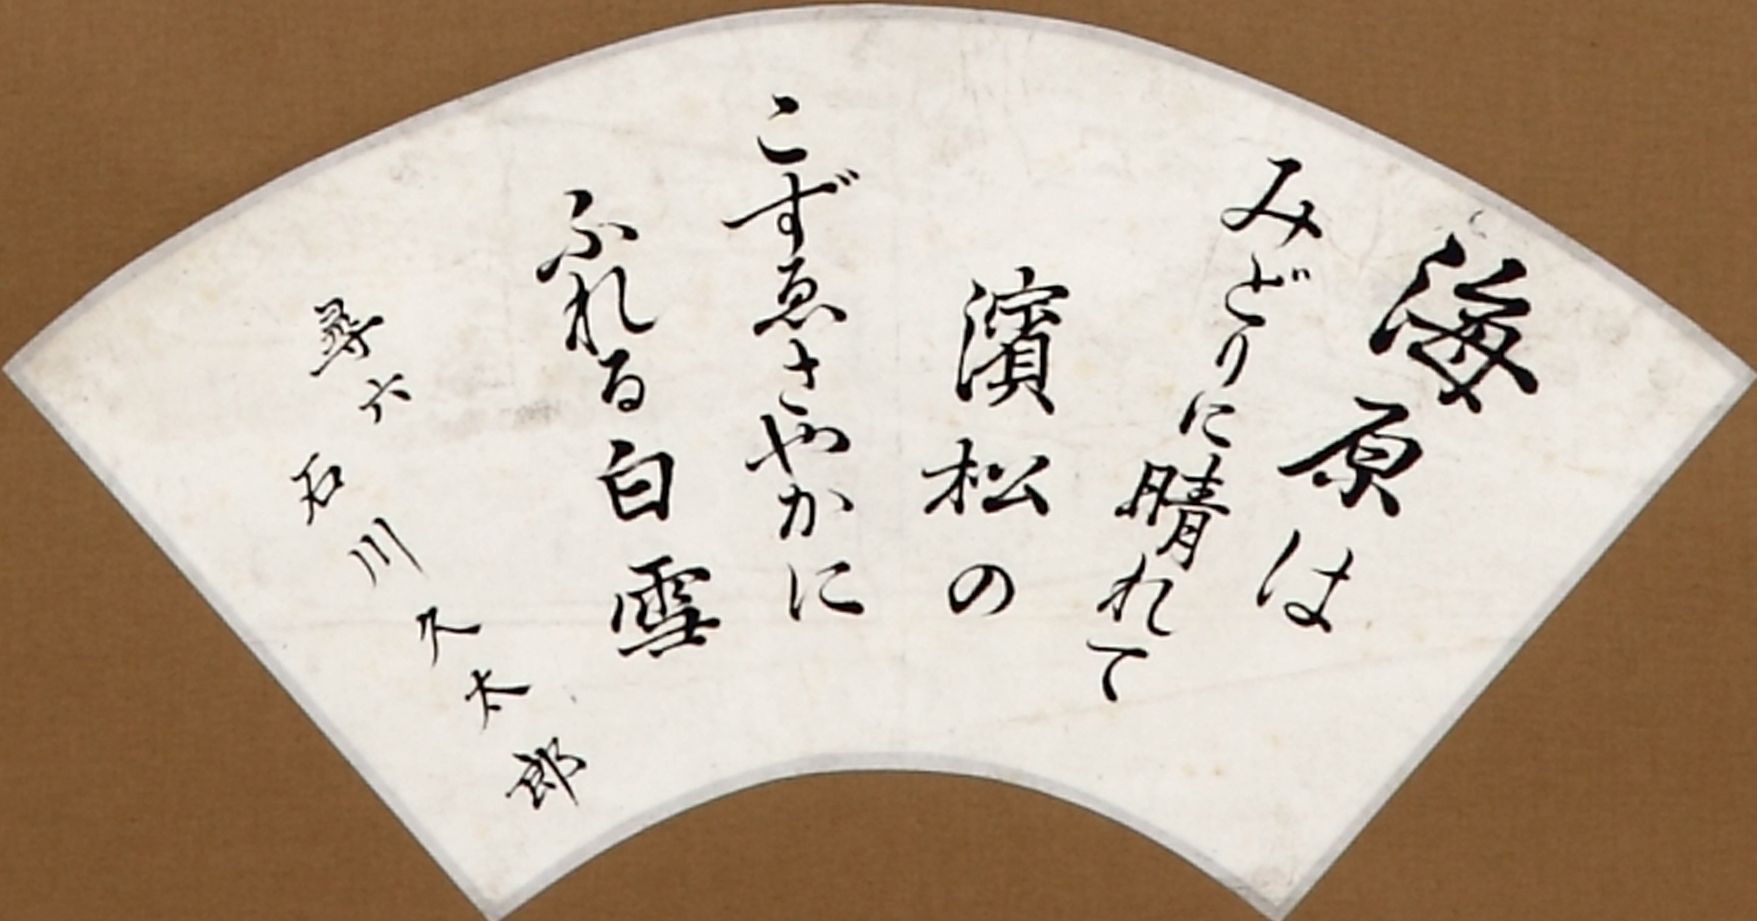 海原は
みどりに晴れて
濱松の
こずゑさやかに
ふれる白雪
尋六 石川久太郎